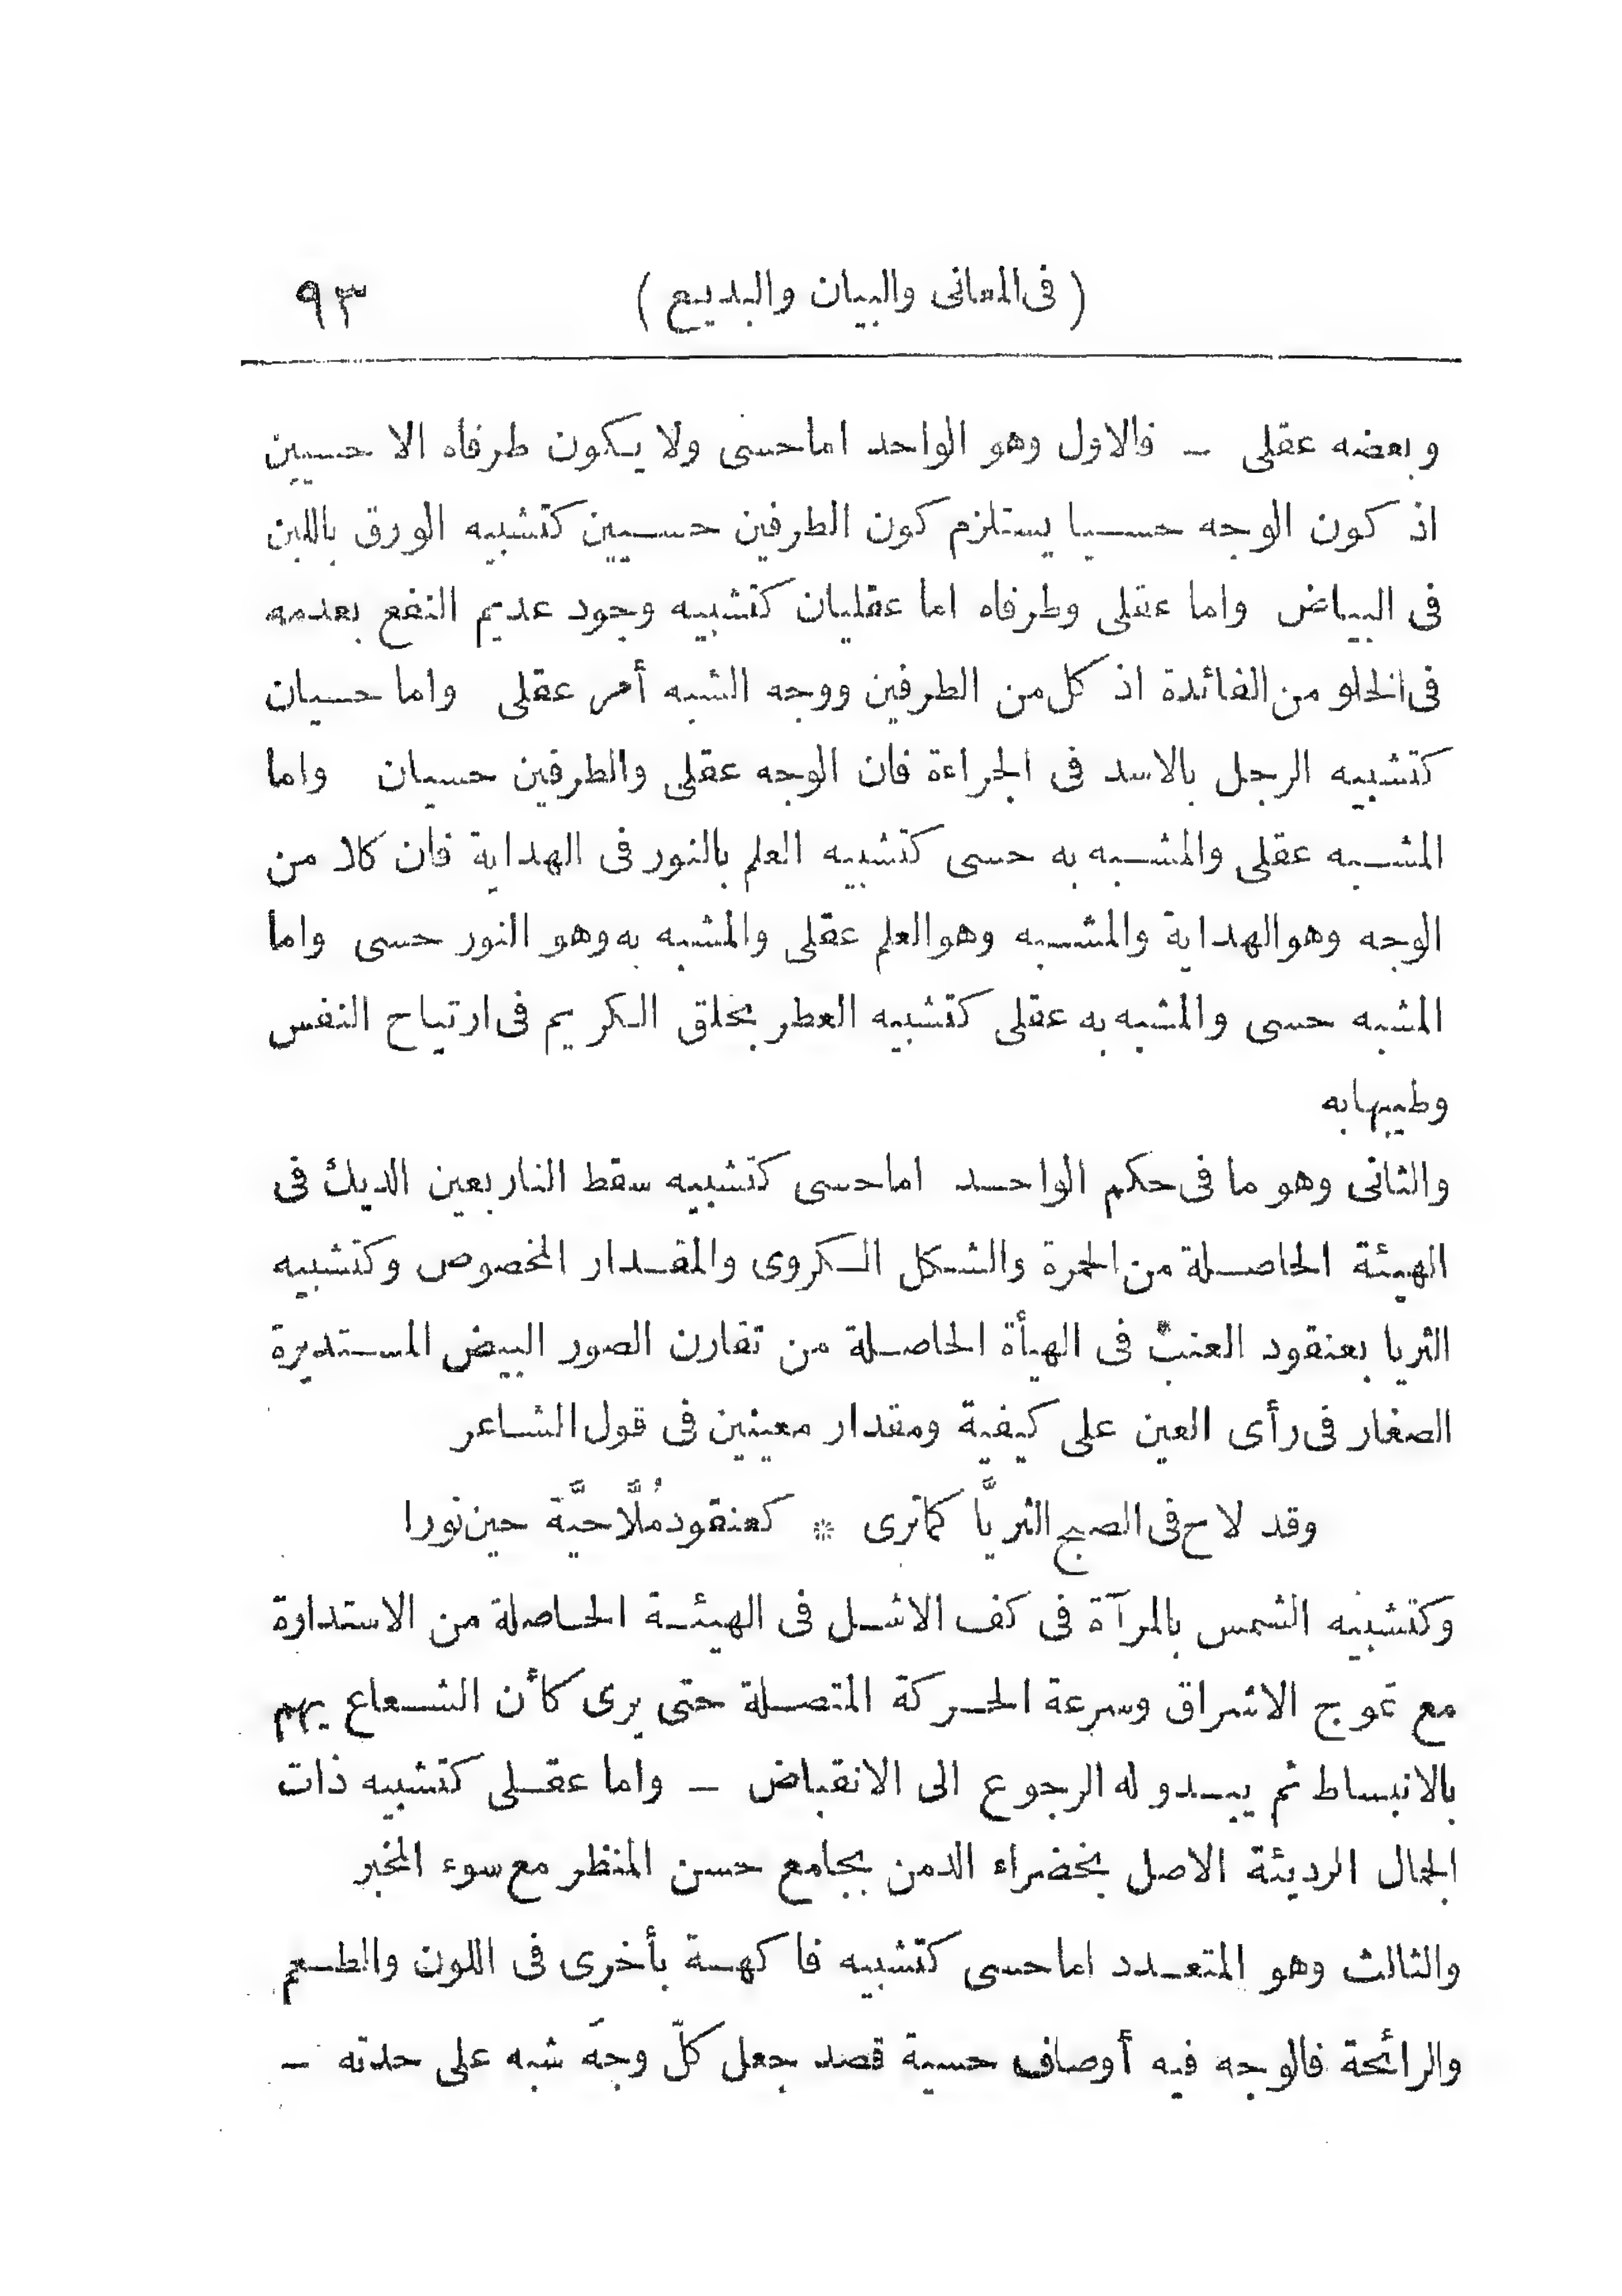 (فى المعانى والبيان والبديع) ٩٣
وبعضه عقلى – فالاول وهو الواحد اما حسى ولا يكون طرفاه الا حسيين
اذ كون الوجه حسيا يستلزم كون الطرفين حسيين كتشبيه الورق باللبن
فى البياض واما عقلى وطرفاه اما عقليان كتشبيه وجود عديم النفع بعدمه
فى الخلو من الفائدة اذ كل من الطرفين ووجه الشبه أمر عقلى واما حسيان
كتشبيه الرجل بالاسد فى الجراءة فان الوجه عقلى والطرفين حسيان واما
المشبه عقلى والمشبه به حسى كتشبيه العلم بالنور فى الهداية فان كلا من
الوجه وهو الهداية والمشبه وهو العلم عقلى والمشبه به وهو النور حسى واما
المشبه حسى والمشبه به عقلى كتشبيه العطر بخلق الكريم فى ارتياح النفس
وطيبها به
والثانى وهو ما فى حكم الواحد اما حسى كتشبيه سقط النار بعين الديك فى
الهيئة الحاصلة من الحمرة والشكل الكروى والمقدار المخصوص وكتشبيه
الثريا بعنقود العنب فى الهيأة الحاصلة من تقارن الصور البيض المستديرة
الصغار فى رأى العين على كيفية ومقدار معينين فى قول الشاعر
وقد لاح فى الصبح الثريَّا كما ترى * كعنقود مُلَّاحيَّة حين نورا
وكتشبيه الشمس بالمرآة فى كف الاشل فى الهيئة الحاصلة من الاستدارة
مع تموج الاشراق وسرعة الحركة المتصلة حتى يرى كأن الشعاع يهم
بالانبساط ثم يبدو له الرجوع الى الانقباض – واما عقلى كتشبيه ذات
الجمال الرديئة الاصل بخضراء الدمن بجامع حسن المنظر مع سوء المخبر
والثالث وهو المتعدد اما حسى كتشبيه فاكهة بأخرى فى اللون والطعم
والرائحة فالوجه فيه أوصاف حسية قصد جعل كلّ وجه شبه على حدته –